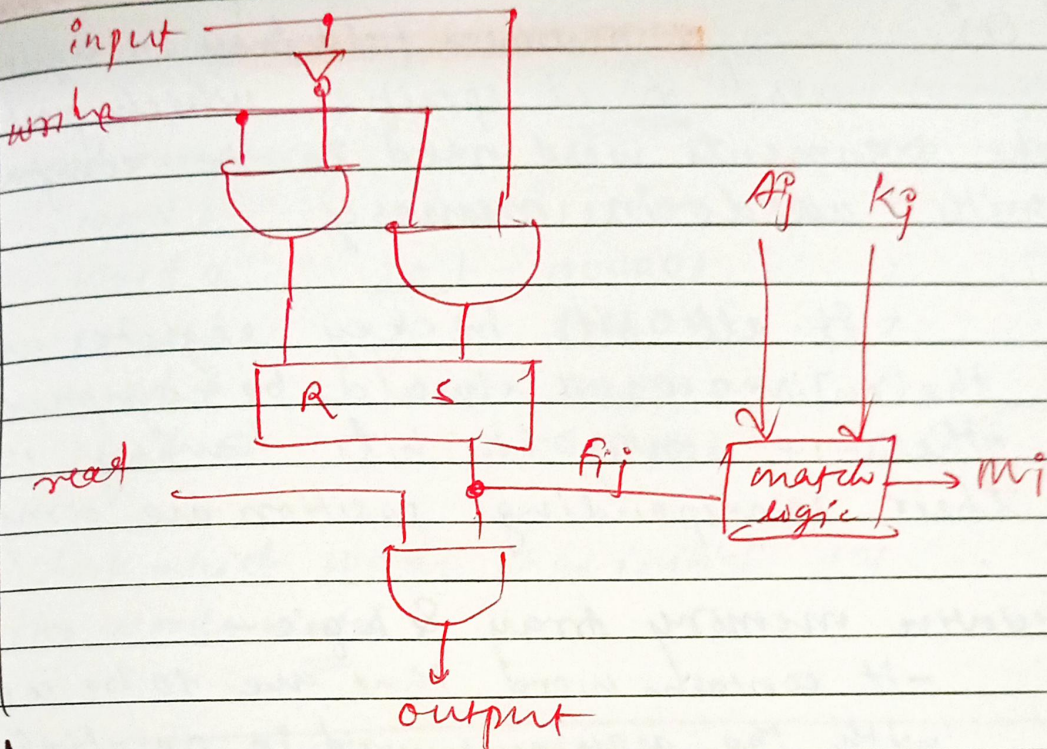 input
write
Aj Kj
R S
read
Fij
match
logic
Mi
output